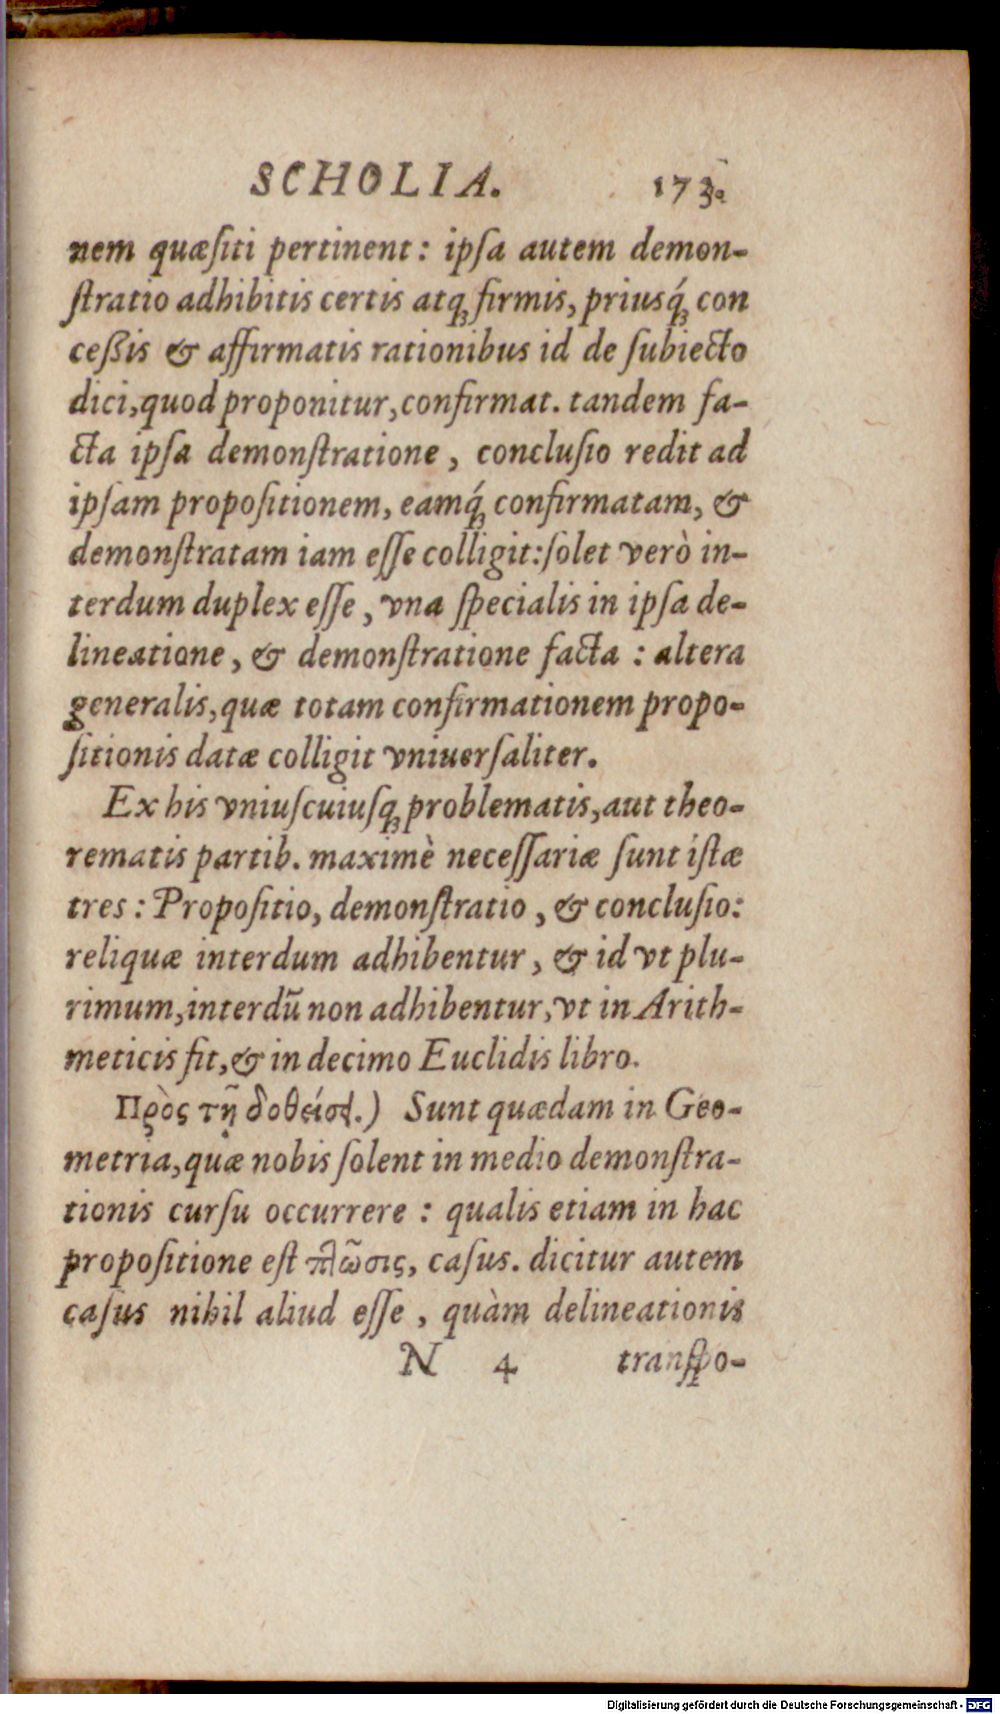 SCHOLIA. 173.
nem quæſiti pertinent: ipſa autem demon-
ſtratio adhibitis certis atq; firmis, priusq́; con
ceßis & affirmatis rationibus id de ſubiecto
dici, quod proponitur, confirmat. tandem fa-
cta ipſa demonſtratione, concluſio redit ad
ipſam propoſitionem, eamq́; confirmatam, &
demonſtratam iam eſſe colligit: ſolet verò in-
terdum duplex eſſe, vna ſpecialis in ipſa de-
lineatione, & demonſtratione facta: altera
generalis, quæ totam confirmationem propo-
ſitionis datæ colligit vniuerſaliter.
Ex his vniuſcuiuſq; problematis, aut theo-
rematis partib. maximè neceſſariæ ſunt iſtæ
tres: Propoſitio, demonſtratio, & concluſio:
reliquæ interdum adhibentur, & id vt plu-
rimum, interdū non adhibentur, vt in Arith-
meticis fit, & in decimo Euclidis libro.
Πρὸς τῇ δοθείσῃ.) Sunt quædam in Geo-
metria, quæ nobis ſolent in medio demonſtra-
tionis curſu occurrere: qualis etiam in hac
propoſitione eſt πτῶσις, caſus. dicitur autem
caſus nihil aliud eſſe, quàm delineationis
N 4 tranſpo-
Digitalisierung gefördert durch die Deutsche Forschungsgemeinschaft - DFG